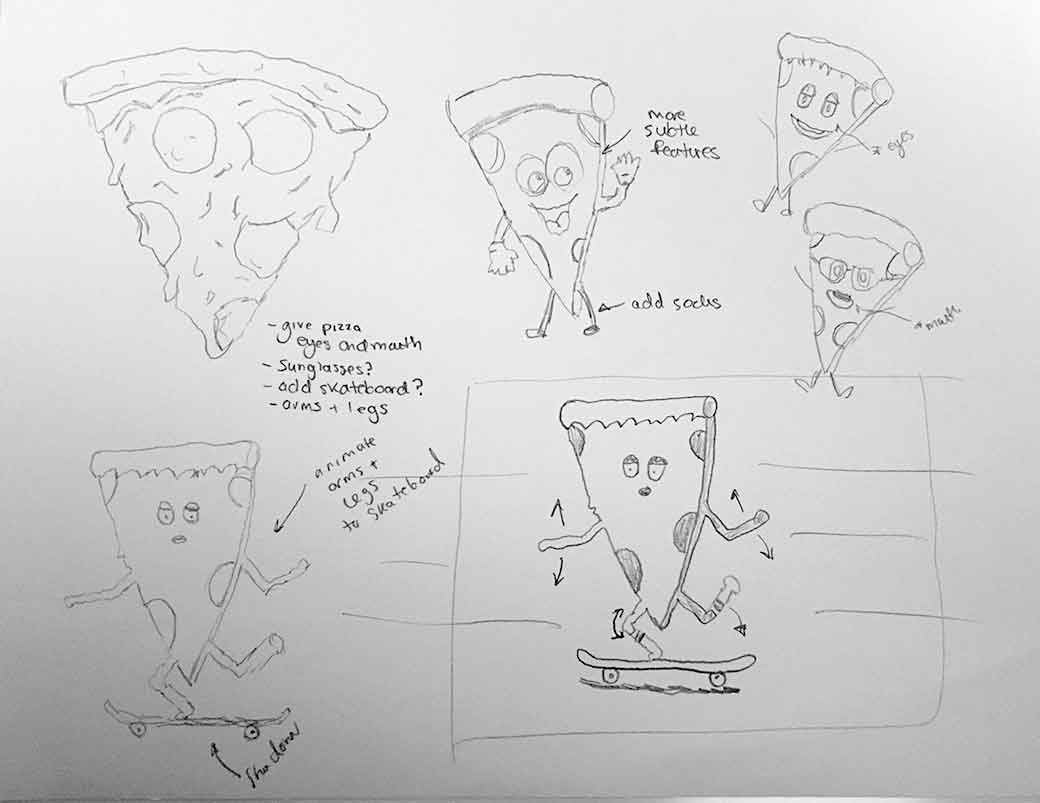 more
subtle
features
* eyes
add socks
* mouth
- give pizza
eyes and mouth
- sunglasses?
- add skateboard?
- arms + legs
animate
arms +
legs
to skateboard
Shadow